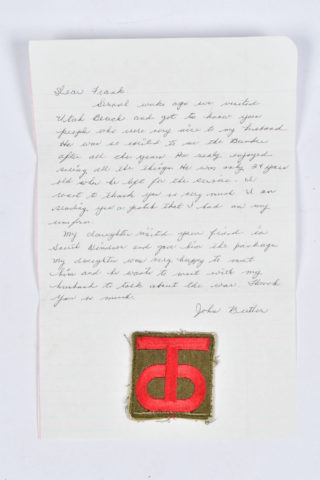 Dear Frank
Several weeks ago we visited
Utah Beach and got to know your
people who were very nice to my husband
He was so excited to see the Bunker
after all the years He really enjoyed
seeing all the things He was only 24 years
old when he left for the service. I
want to thank you so very much I am
sending you a patch that I had on my
uniform.
My daughter visited your friend in
and gave him the package
My daughter was very happy to meet
him and he wants to meet with my
husband to talk about the war. Thank
you so much.
John